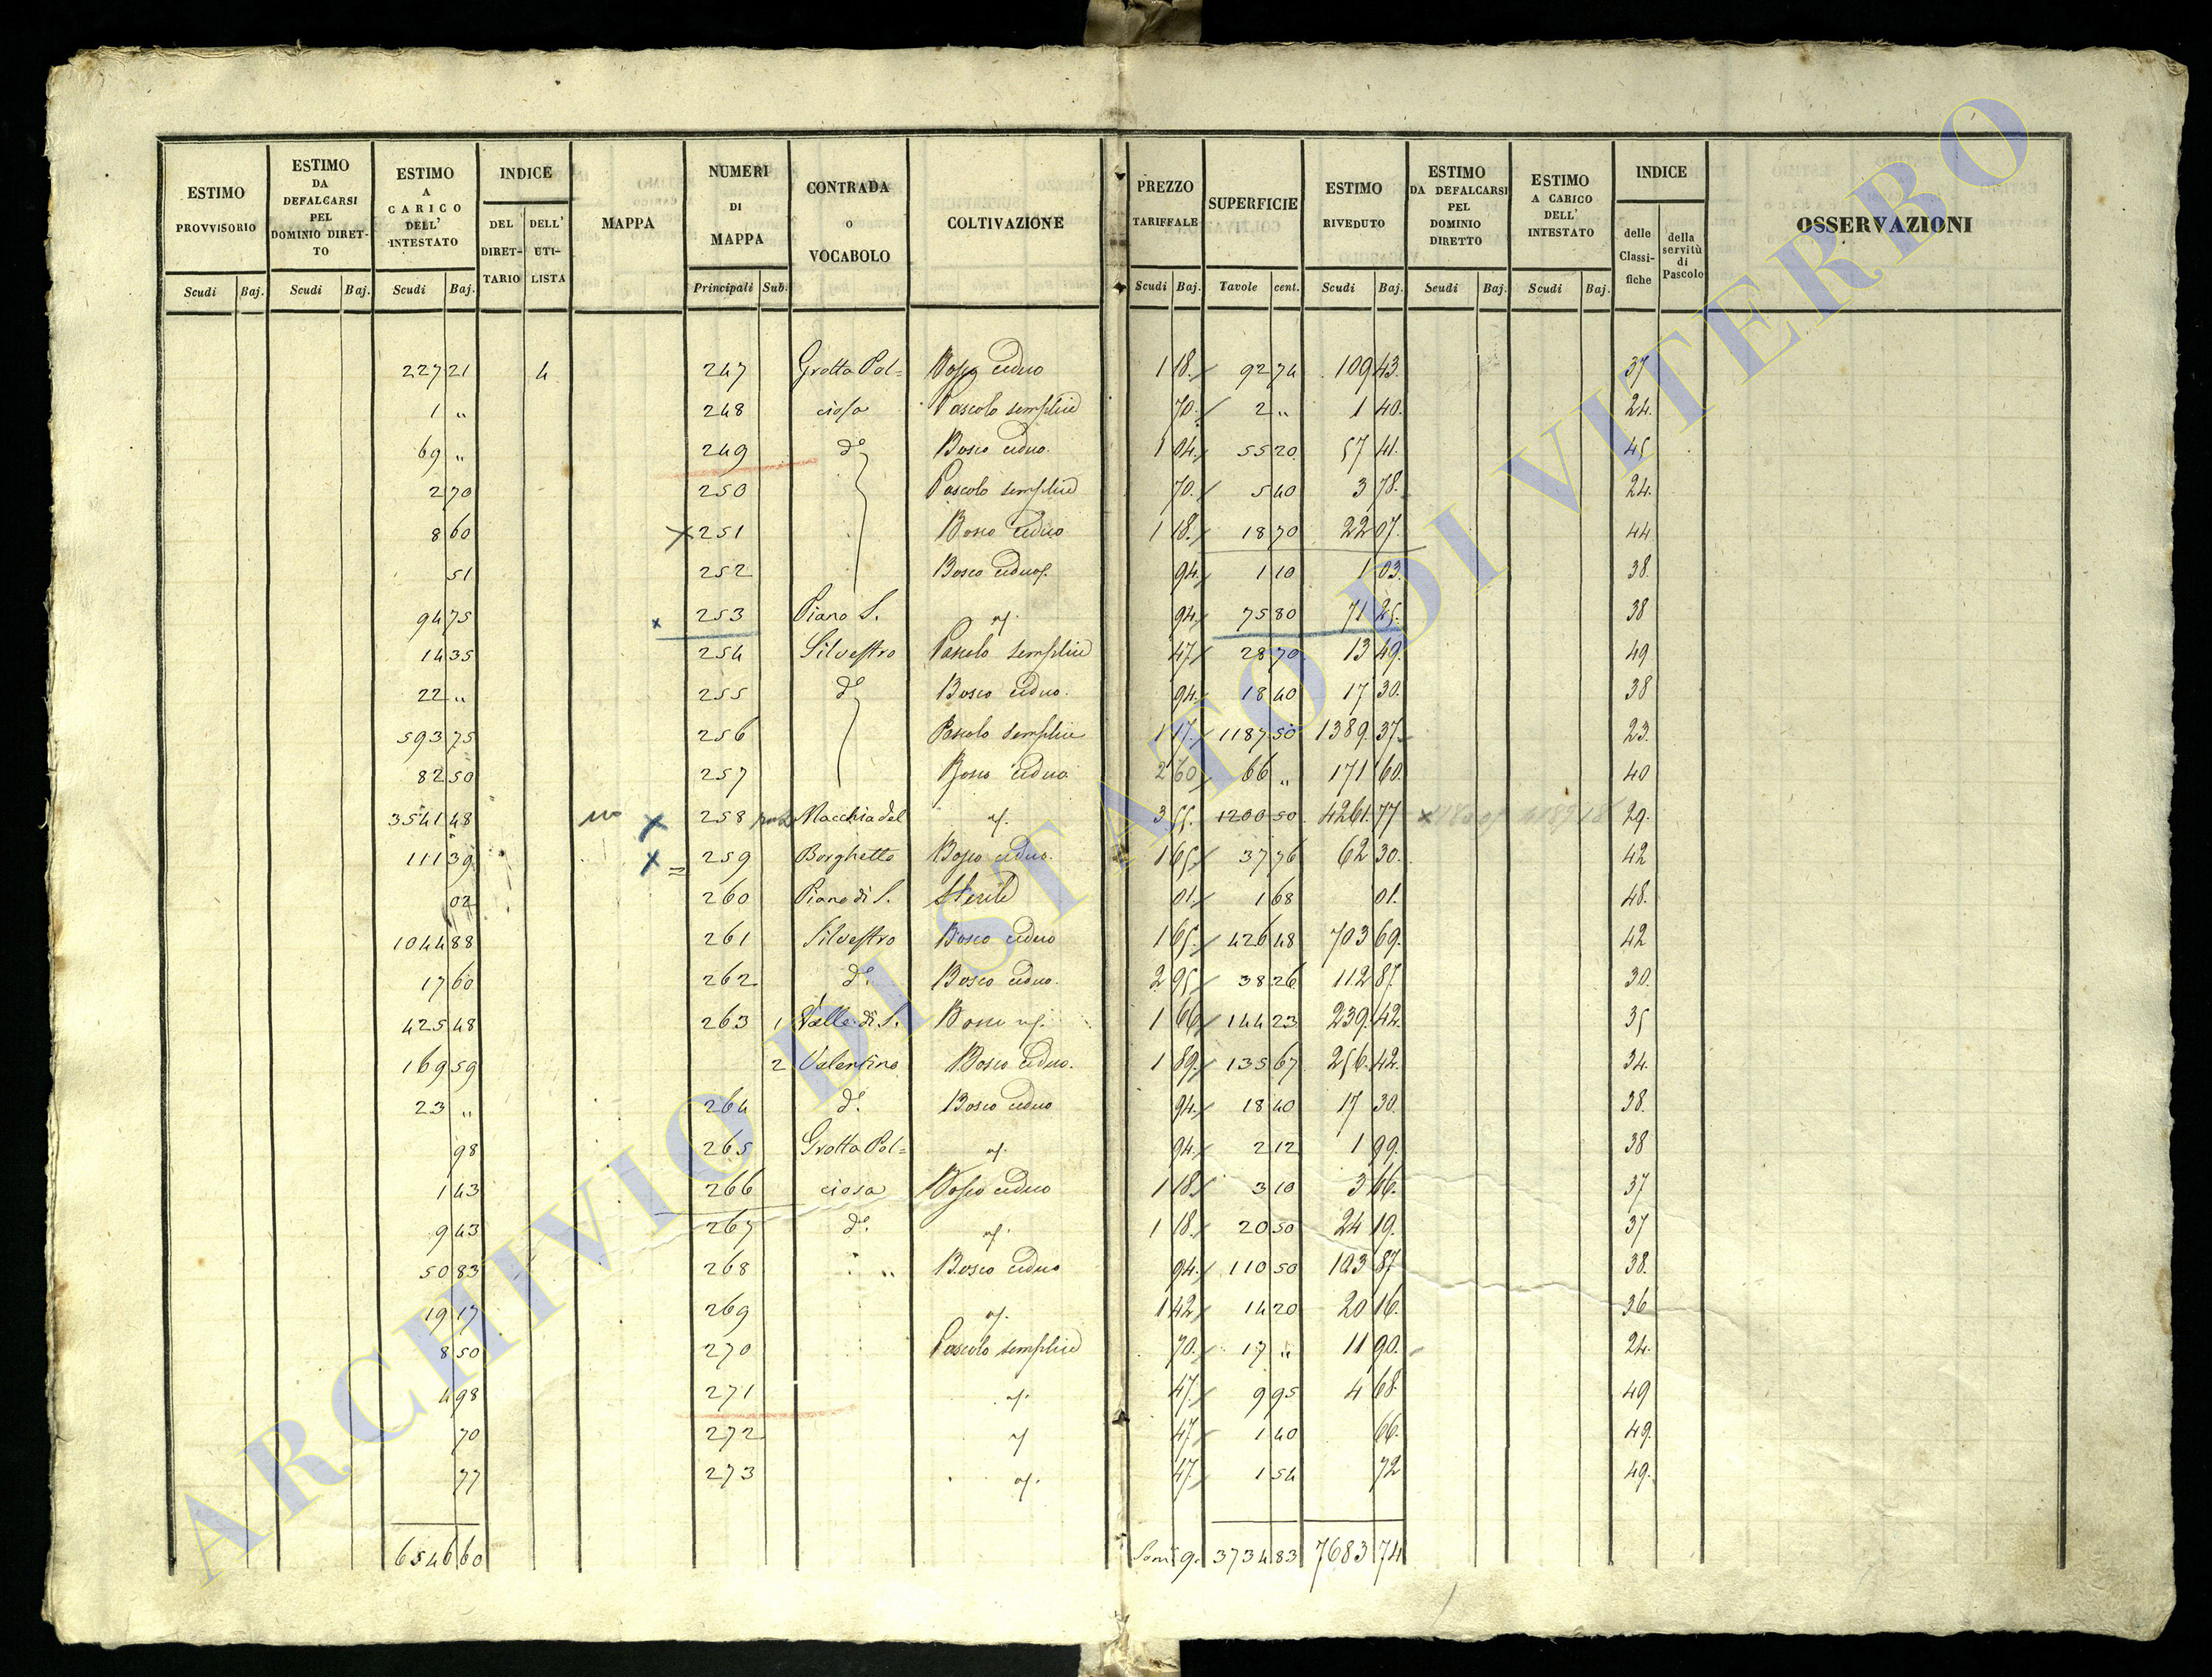 ESTIMO PROVVISORIO
ESTIMO DA DEFALCARSI PEL DOMINIO DIRETTO
ESTIMO A CARICO DELL' INTESTATO
INDICE
DEL DIRETTARIO
DELL' UTILISTA
MAPPA
NUMERI DI MAPPA
CONTRADA o VOCABOLO
COLTIVAZIONE
PREZZO TARIFFALE
SUPERFICIE
ESTIMO RIVEDUTO
ESTIMO DA DEFALCARSI PEL DOMINIO DIRETTO
ESTIMO A CARICO DELL' INTESTATO
INDICE
delle Classifiche
della servitù di Pascolo
OSSERVAZIONI
Scudi Baj. Scudi Baj. Scudi Baj. Principali Sub. Scudi Baj. Tavole cent. Scudi Baj. Scudi Baj. Scudi Baj.
227 21 4 247 Grotta Pal= Bosco ceduo 1 18. 92 74 109 43. 37
1 " 248 ciosa Pascolo semplice 70. 2 " 1 40. 24.
69 " 249 d° Bosco ceduo. 1 04. 55 20 57 41. 45
2 70 250 Pascolo semplice 70. 5 40 3 78. 24.
8 60 251 Bosco ceduo 1 18. 18 70 22 07. 44
51 252 Bosco ceduo 94. 1 10 1 03. 38.
94 75 253 Piano S. 94. 75 80 71 25. 38
14 35 254 Silvestro Pascolo semplice 47. 28 70 13 49. 49
22 " 255 d° Bosco ceduo. 94. 18 40 17 30. 38
593 75 256 Pascolo semplice 1 17. 1187 50 1389. 37. 23.
82 50 257 Bosco ceduo 2 60 66 " 171 60. 40
3541 48 258 Macchia del 3 55. 1200 50 4261. 77 29.
111 39 259 Borghetto Bosco ceduo. 1 65. 37 76 62 30. 42
02 260 Piano di S. Sterile 01. 1 68 01. 48.
1044 88 261 Silvestro Bosco ceduo 1 65. 426 48 703 69. 42
17 60 262 d°. Bosco ceduo. 2 95. 38 26 112 87. 30.
425 48 263 1 Valle di S. Bosco 1 66 144 23 239. 42. 35
169 59 2 Valentino Bosco ceduo. 1 89. 135 67 256. 42. 34.
23 " 264 d°. Bosco ceduo 94. 18 40 17 30. 38.
98 265 Grotta Pal= 94. 2 12 1 99. 38
1 43 266 ciosa Bosco ceduo 1 18. 3 10 3 66. 37
9 43 267 d°. 1 18. 20 50 24 19. 37
50 83 268 " Bosco ceduo 94. 110 50 103 87 38.
19 17 269 1 42. 14 20 20 16. 36
8 50 270 Pascolo semplice 70. 17 " 11 90. 24.
4 98 271 47. 9 95 4 68. 49
70 272 47. 1 40 66. 49.
77 273 47. 1 54 72 49.
6546 60 3734 83 7683 74
ARCHIVIO DI STATO DI VITERBO